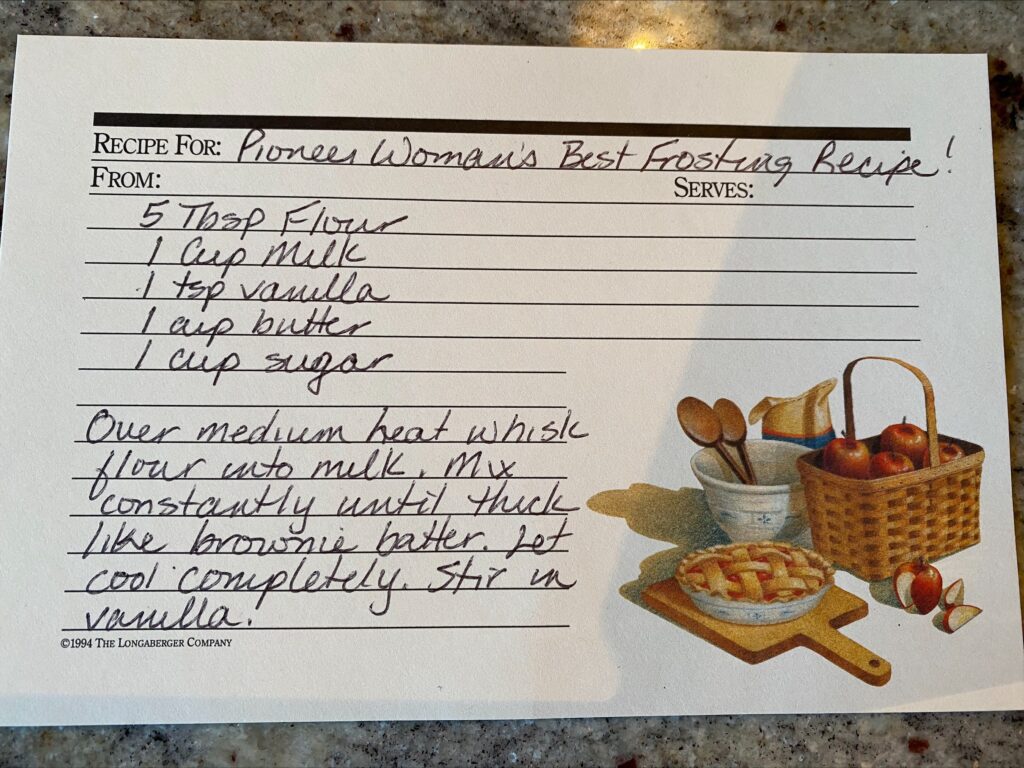 RECIPE FOR: Pioneer Woman's Best Frosting Recipe!
FROM: SERVES:
5 Tbsp Flour
1 Cup Milk
1 tsp vanilla
1 cup butter
1 cup sugar
Over medium heat whisk
flour into milk. Mix
constantly until thick
like brownie batter. Let
cool completely. Stir in
vanilla.
©1994 THE LONGABERGER COMPANY